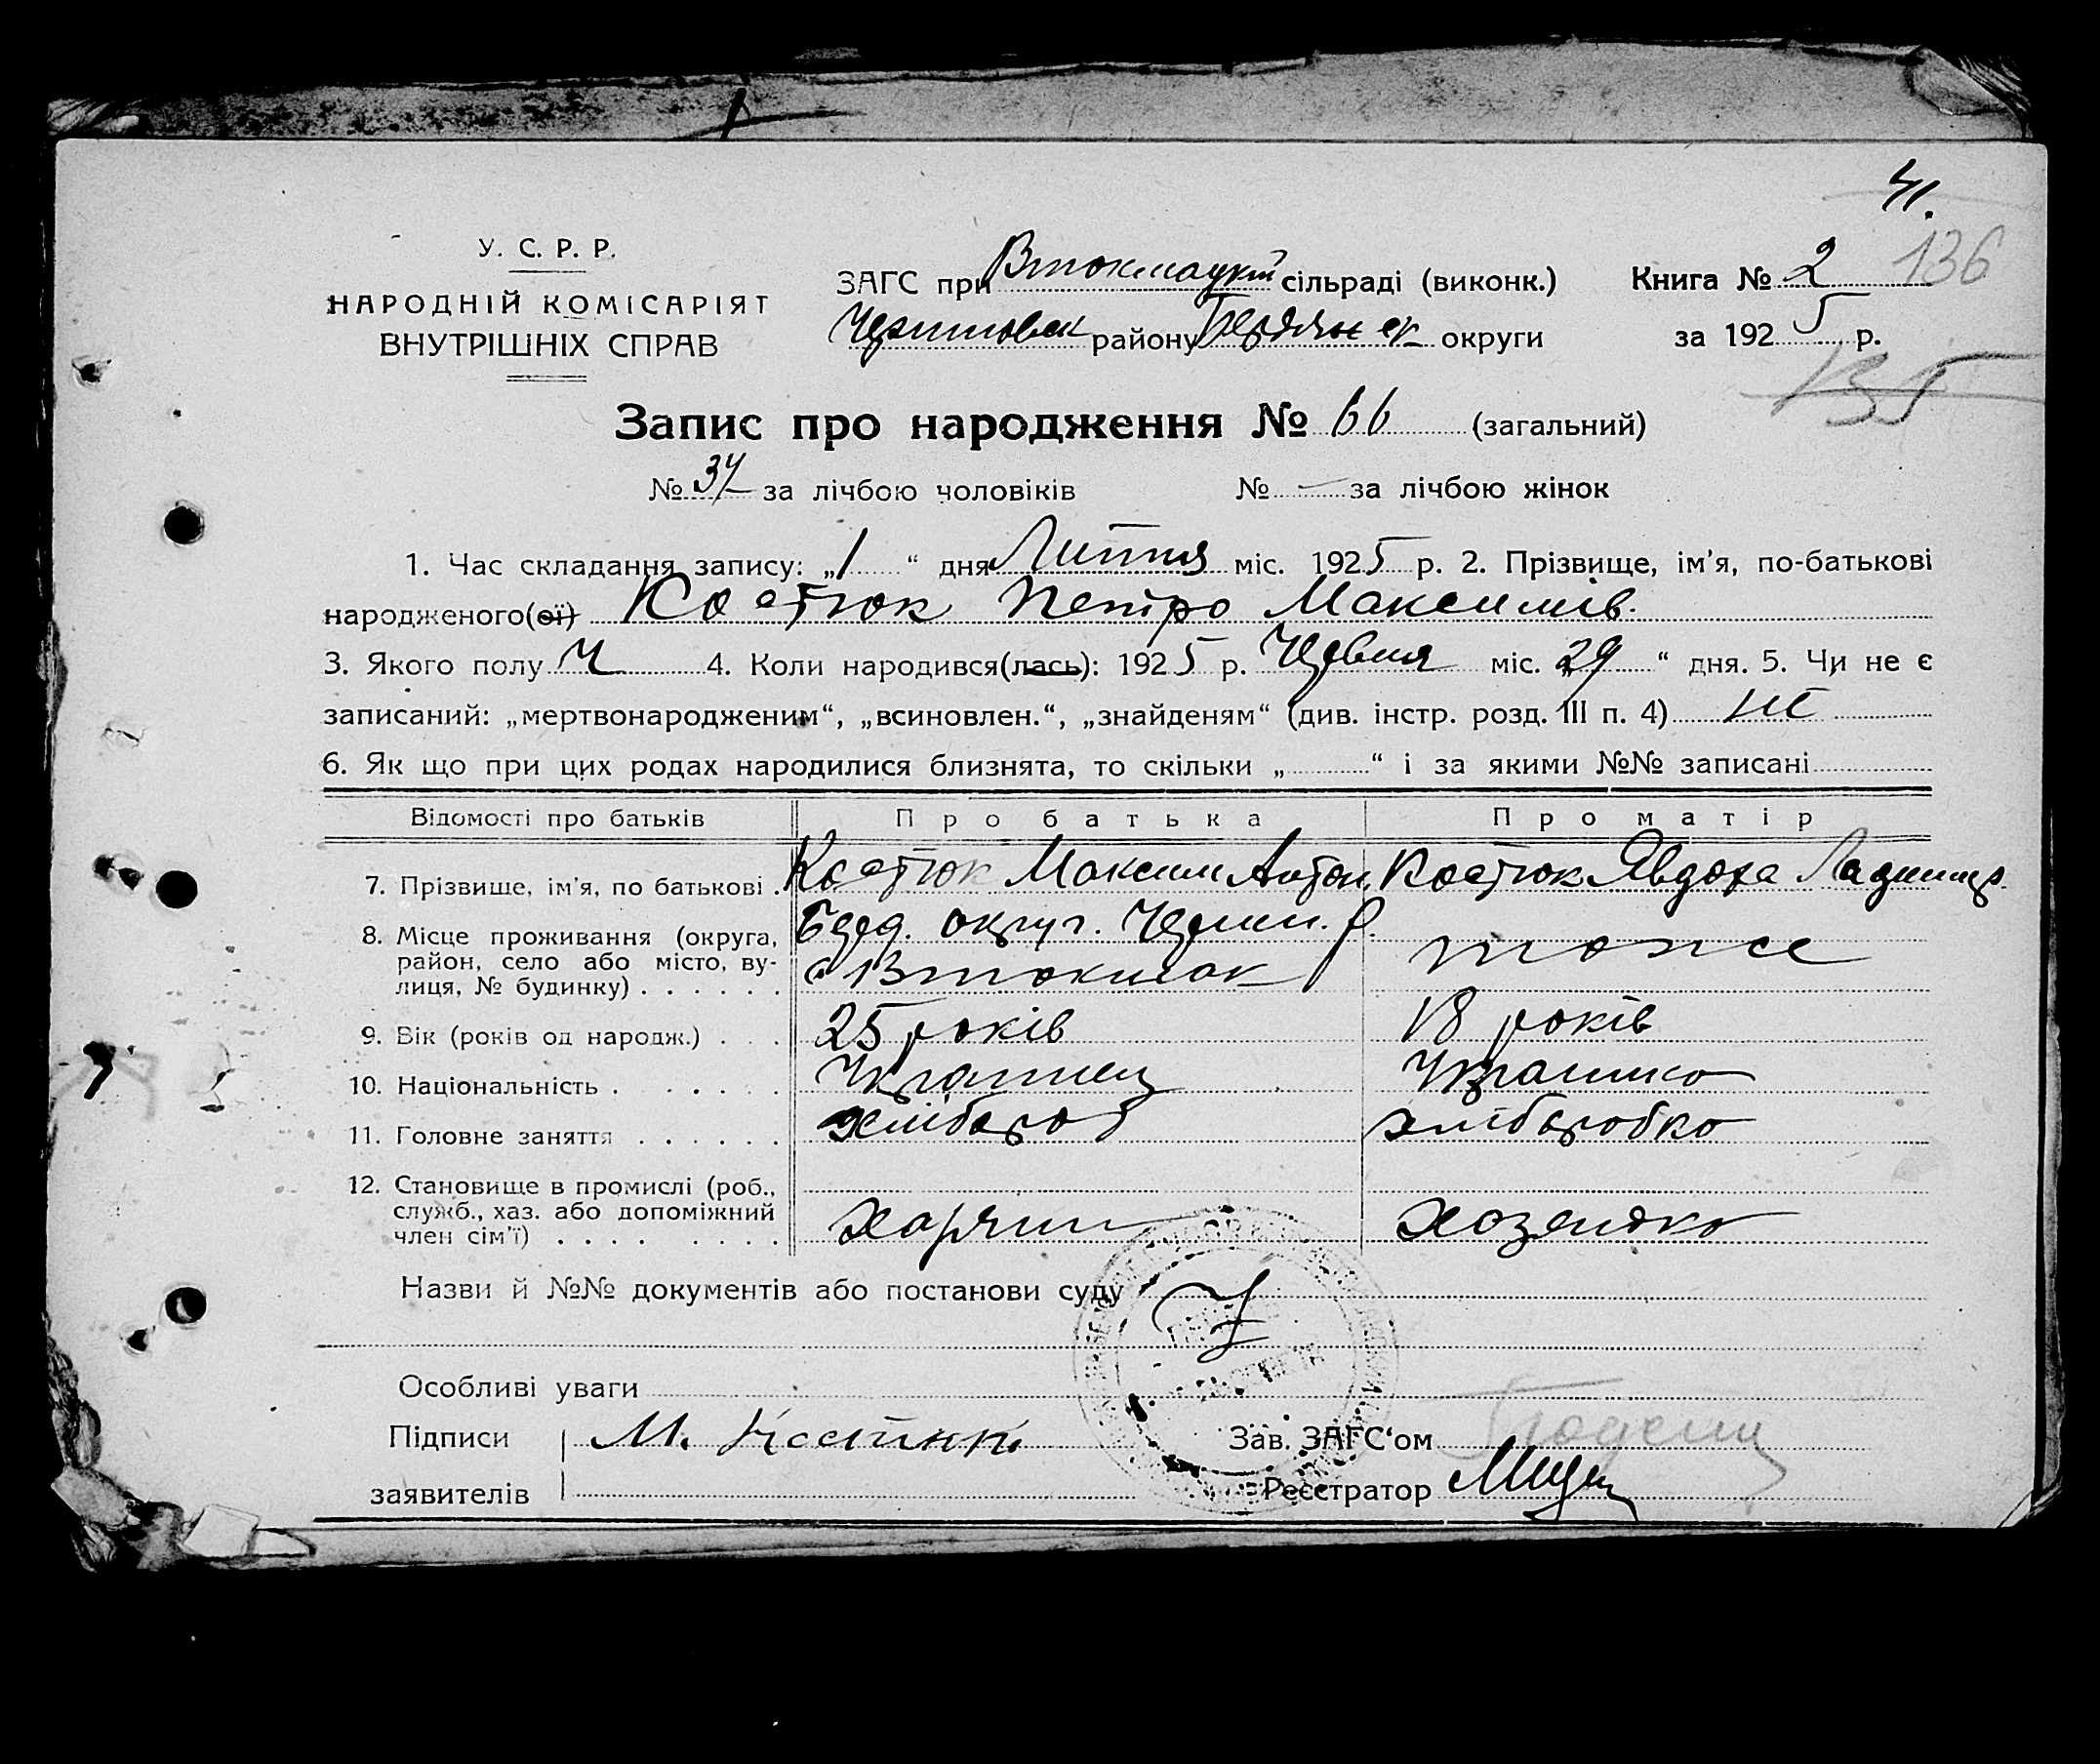 41.
У. С. Р. Р.
НАРОДНІЙ КОМІСАРІЯТ
ВНУТРІШНІХ СПРАВ
ЗАГС при Втокмацкій сільраді (виконк.)
району Бердянск округи
Книга № 2 136
за 1925 р.
135
Запис про народження № 66 (загальний)
№ 34 за лічбою чоловіків № — за лічбою жінок
1. Час складання запису: „1“ дня Липня міс. 1925 р. 2. Прізвище, ім'я, по-батькові
народженого(ої) Костюк Петро Максимів.
3. Якого полу Ч 4. Коли народився(лась): 1925 р. Червня міс. „29“ дня. 5. Чи не є
записаний: „мертвонародженим“, „всиновлен.“, „знайденям“ (див. інстр. розд. III п. 4) не
6. Як що при цих родах народилися близнята, то скільки „ “ і за якими №№ записані
Відомості про батьків Про батька Про матір
7. Прізвище, ім'я, по батькові . Костюк Максим Антон. Костюк Явдоха
8. Місце проживання (округа, район, село або місто, вулиця, № будинку) . . . . . . Берд. округ. Черн. р.
с Втокмак тоже
9. Вік (років од народж.) . . . 25 років 18 років
10. Національність . . . . . Украінец Украінка
11. Головне заняття . . . . . . хлібороб хліборобка
12. Становище в промислі (роб., служб., хаз. або допоміжний член сім'ї) . . . . . . . . хазяйка
Назви й №№ документів або постанови суду
Особливі уваги
Підписи М. Костюк Зав. ЗАГС'ом
заявителів Реєстратор